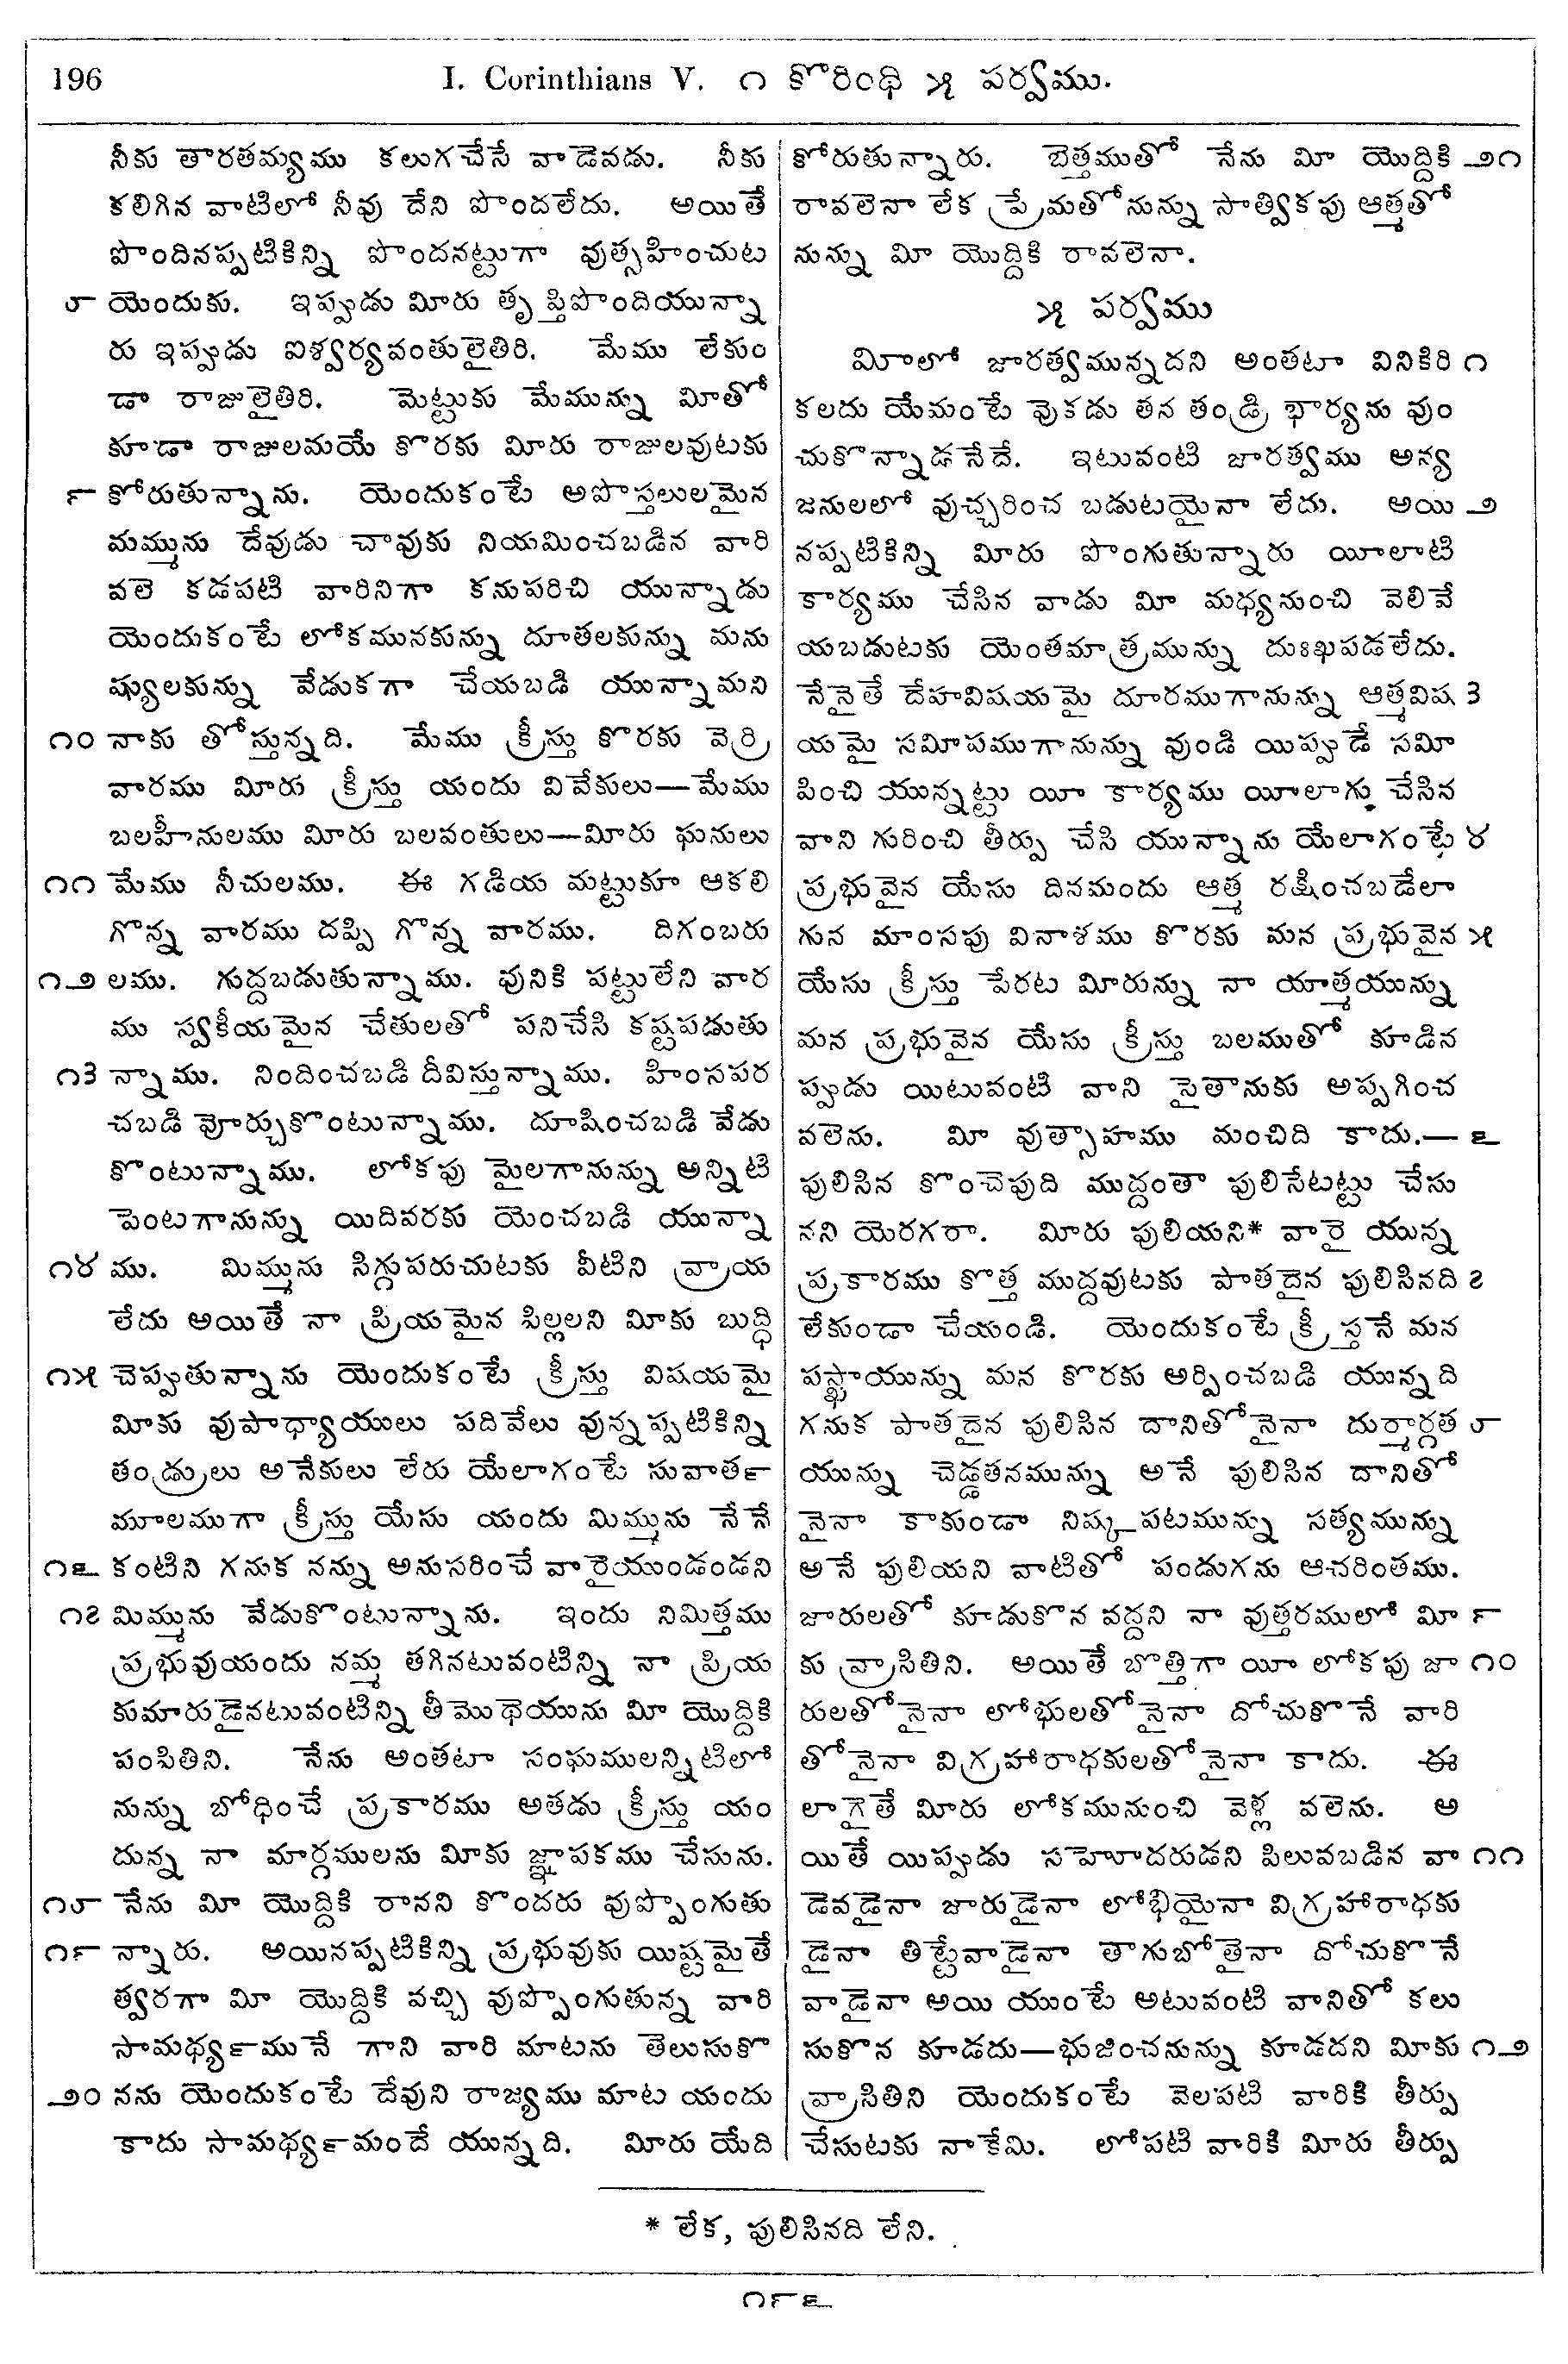 196 I. Corinthians V. ౧ కొరింథి ౫ పర్వము.
నీకు తారతమ్యము కలుగచేసే వాడెవడు. నీకు
కలిగిన వాటిలో నీవు దేని పొందలేదు. అయితే
పొందినప్పటికిన్ని పొందనట్టుగా వుత్సహించుట
౮ యెందుకు. ఇప్పుడు మీరు తృప్తిపొందియున్నా
రు ఇప్పుడు ఐశ్వర్యవంతులైతిరి. మేము లేకుం
డా రాజులైతిరి. మెట్టుకు మేమున్ను మీతో
కూడా రాజులమయే కొరకు మీరు రాజులవుటకు
౯ కోరుతున్నాను. యెందుకంటే అపొస్తలులమైన
మమ్మును దేవుడు చావుకు నియమించబడిన వారి
వలె కడపటి వారినిగా కనుపరిచి యున్నాడు
యెందుకంటే లోకమునకున్ను దూతలకున్ను మను
ష్యులకున్ను వేడుకగా చేయబడి యున్నామని
౧౦ నాకు తోస్తున్నది. మేము క్రీస్తు కొరకు వెర్రి
వారము మీరు క్రీస్తు యందు వివేకులు—మేము
బలహీనులము మీరు బలవంతులు—మీరు ఘనులు
౧౧ మేము నీచులము. ఈ గడియ మట్టుకూ ఆకలి
గొన్న వారము దప్పి గొన్న వారము. దిగంబరు
౧౨ లము. గుద్దబడుతున్నాము. వునికి పట్టులేని వార
ము స్వకీయమైన చేతులతో పనిచేసి కష్టపడుతు
౧౩ న్నాము. నిందించబడి దీవిస్తున్నాము. హింసపర
చబడి వోర్చుకొంటున్నాము. దూషించబడి వేడు
కొంటున్నాము. లోకపు మైలగానున్ను అన్నిటి
పెంటగానున్ను యిదివరకు యెంచబడి యున్నా
౧౪ ము. మిమ్మును సిగ్గుపరుచుటకు వీటిని వ్రాయ
లేదు అయితే నా ప్రియమైన పిల్లలని మీకు బుద్ధి
౧౫ చెప్పుతున్నాను యెందుకంటే క్రీస్తు విషయమై
మీకు వుపాధ్యాయులు పదివేలు వున్నప్పటికిన్ని
తండ్రులు అనేకులు లేరు యేలాగంటే సువార్త
మూలముగా క్రీస్తు యేసు యందు మిమ్మును నేనే
౧౬ కంటిని గనుక నన్ను అనుసరించే వారైయుండండని
౧౭ మిమ్మును వేడుకొంటున్నాను. ఇందు నిమిత్తము
ప్రభువుయందు నమ్మ తగినటువంటిన్ని నా ప్రియ
కుమారుడైనటువంటిన్ని తీమొథెయును మీ యొద్దికి
పంపితిని. నేను అంతటా సంఘములన్నిటిలో
నున్ను బోధించే ప్రకారము అతడు క్రీస్తు యం
దున్న నా మార్గములను మీకు జ్ఞాపకము చేసును.
౧౮ నేను మీ యొద్దికి రానని కొందరు వుప్పొంగుతు
౧౯ న్నారు. అయినప్పటికిన్ని ప్రభువుకు యిష్టమైతే
త్వరగా మీ యొద్దికి వచ్చి వుప్పొంగుతున్న వారి
సామర్థ్యమునే గాని వారి మాటను తెలుసుకొ
౨౦ నను యెందుకంటే దేవుని రాజ్యము మాట యందు
కాదు సామర్థ్యమందే యున్నది. మీరు యేది
కోరుతున్నారు. బెత్తముతో నేను మీ యొద్దికి ౨౧
రావలెనా లేక ప్రేమతోనున్ను సాత్వికపు ఆత్మతో
నున్ను మీ యొద్దికి రావలెనా.
౫ పర్వము
మీలో జారత్వమున్నదని అంతటా వినికిరి ౧
కలదు యేమంటే వొకడు తన తండ్రి భార్యను వుం
చుకొన్నాడనేదే. ఇటువంటి జారత్వము అన్య
జనులలో వుచ్చరించ బడుటయైనా లేదు. అయి ౨
నప్పటికిన్ని మీరు పొంగుతున్నారు యీలాటి
కార్యము చేసిన వాడు మీ మధ్యనుంచి వెలివే
యబడుటకు యెంతమాత్రమున్ను దుఃఖపడలేదు.
నేనైతే దేహవిషయమై దూరముగానున్ను ఆత్మవిష ౩
యమై సమీపముగానున్ను వుండి యిప్పుడే సమీ
పించి యున్నట్టు యీ కార్యము యీలాగు చేసిన
వాని గురించి తీర్పు చేసి యున్నాను యేలాగంటే ౪
ప్రభువైన యేసు దినమందు ఆత్మ రక్షించబడేలా
గున మాంసపు వినాశము కొరకు మన ప్రభువైన ౫
యేసు క్రీస్తు పేరట మీరున్ను నా యాత్మయున్ను
మన ప్రభువైన యేసు క్రీస్తు బలముతో కూడిన
ప్పుడు యిటువంటి వాని సైతానుకు అప్పగించ
వలెను. మీ వుత్సాహము మంచిది కాదు.— ౬
పులిసిన కొంచెపుది ముద్దంతా పులిసేటట్టు చేసు
నని యెరగరా. మీరు పులియని* వారై యున్న
ప్రకారము కొత్త ముద్దవుటకు పాతదైన పులిసినది ౭
లేకుండా చేయండి. యెందుకంటే క్రీస్తనే మన
పస్ఖాయున్ను మన కొరకు అర్పించబడి యున్నది
గనుక పాతదైన పులిసిన దానితోనైనా దుర్మార్గత ౮
యున్ను చెడ్డతనమున్ను అనే పులిసిన దానితో
నైనా కాకుండా నిష్కపటమున్ను సత్యమున్ను
అనే పులియని వాటితో పండుగను ఆచరింతము.
జారులతో కూడుకొన వద్దని నా వుత్తరములో మీ ౯
కు వ్రాసితిని. అయితే బొత్తిగా యీ లోకపు జా ౧౦
రులతోనైనా లోభులతోనైనా దోచుకొనే వారి
తోనైనా విగ్రహారాధకులతోనైనా కాదు. ఈ
లాగైతే మీరు లోకమునుంచి వెళ్ల వలెను. అ
యితే యిప్పుడు సహోదరుడని పిలువబడిన వా ౧౧
డెవడైనా జారుడైనా లోభియైనా విగ్రహారాధకు
డైనా తిట్టేవాడైనా తాగుబోతైనా దోచుకొనే
వాడైనా అయి యుంటే అటువంటి వానితో కలు
సుకొన కూడదు—భుజించనున్ను కూడదని మీకు ౧౨
వ్రాసితిని యెందుకంటే వెలపటి వారికి తీర్పు
చేసుటకు నాకేమి. లోపటి వారికి మీరు తీర్పు
* లేక, పులిసినది లేని.
౧౯౬